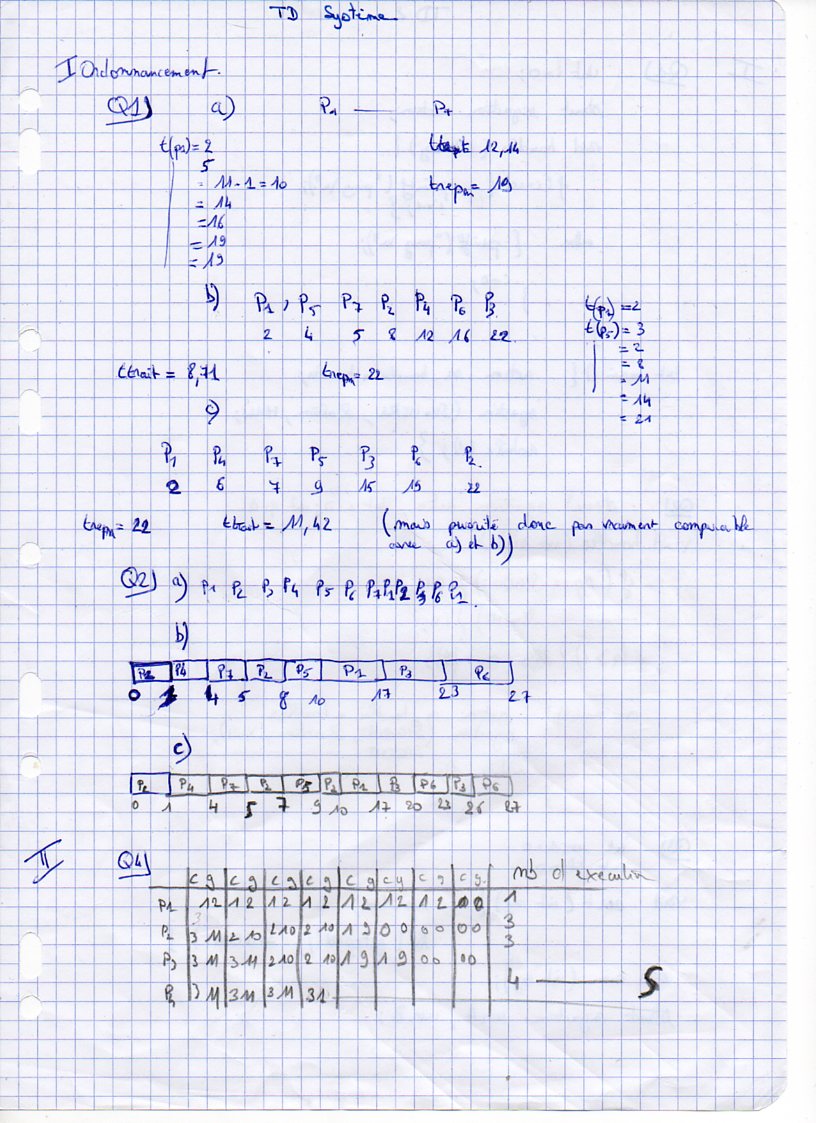 TD Système
I Ordonnancement.
Q1) a) P1 — P7
t(p1) = 2
5
= 11-1 = 10
= 14
= 16
= 19
= 19
12,14
trepm = 19
b) P1, P5 P7 P2 P4 P6 P3
2 4 5 8 12 16 22
t(p1) = 2
t(p5) = 3
= 2
= 8
= 11
= 14
= 21
ttrait = 8,71 trepm = 22
c)
P1 P4 P7 P5 P3 P6 P2
2 6 7 9 15 19 22
trepm = 22 ttrait = 11,42 (mais priorité donc pas vraiment comparable
avec a) et b))
Q2) a) P1 P2 P3 P4 P5 P6 P7 P1 P2 P3 P6 P1
b)
P2 P4 P7 P2 P5 P1 P3 P6
0 1 4 5 8 10 17 23 27
c)
P2 P4 P7 P2 P5 P2 P1 P3 P6 P3 P6
0 1 4 5 7 9 10 17 20 23 26 27
II Q4)
c g c g c g c g c g c g c g c g nb d'execution
P1 1 2 1 2 1 2 1 2 1 2 1 2 1 2 0 0 1
P2 3 11 2 10 2 10 2 10 1 9 0 0 0 0 0 0 3
3
P3 3 11 3 11 2 10 2 10 1 9 1 9 0 0 0 0
3 11 3 11 3 11 3 1 4 — 5